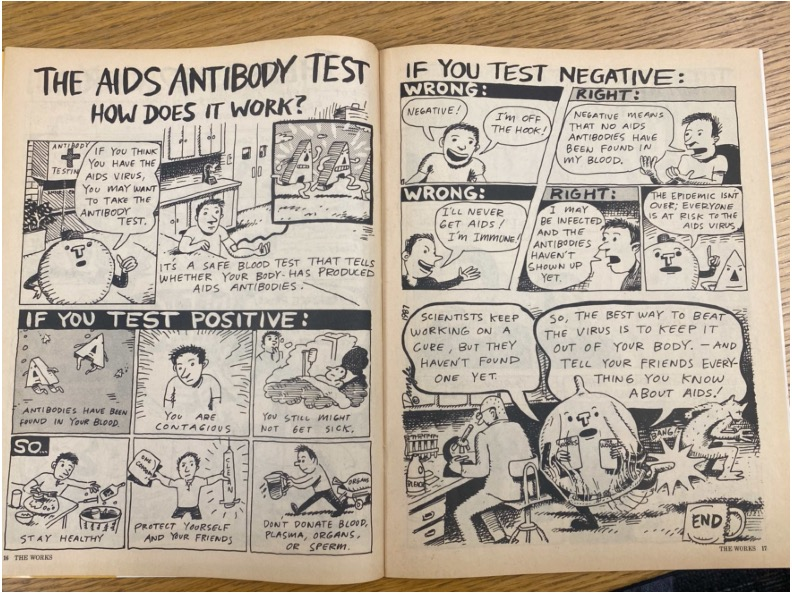 THE AIDS ANTIBODY TEST
HOW DOES IT WORK?
ANTIBODY
TESTIN
IF YOU THINK
YOU HAVE THE
AIDS VIRUS,
YOU MAY WANT
TO TAKE THE
ANTIBODY
TEST.
AA
IT'S A SAFE BLOOD TEST THAT TELLS
WHETHER YOUR BODY HAS PRODUCED
AIDS ANTIBODIES.
IF YOU TEST POSITIVE:
A A
ANTIBODIES HAVE BEEN
FOUND IN YOUR BLOOD.
YOU ARE
CONTAGIOUS
YOU STILL MIGHT
NOT GET SICK.
SO...
STAY HEALTHY
CLEAN
PROTECT YOURSELF
AND YOUR FRIENDS
ORGANS
DONT DONATE BLOOD,
PLASMA, ORGANS,
OR SPERM.
16 THE WORKS
IF YOU TEST NEGATIVE:
WRONG:
NEGATIVE!
I'M OFF
THE HOOK!
RIGHT:
NEGATIVE MEANS
THAT NO AIDS
ANTIBODIES HAVE
BEEN FOUND IN
MY BLOOD.
WRONG:
I'LL NEVER
GET AIDS!
I'M IMMUNE!
RIGHT:
I MAY
BE INFECTED
AND THE
ANTIBODIES
HAVEN'T
SHOWN UP
YET.
THE EPIDEMIC ISN'T
OVER; EVERYONE
IS AT RISK TO THE
AIDS VIRUS.
1987
SCIENTISTS KEEP
WORKING ON A
CURE, BUT THEY
HAVEN'T FOUND
ONE YET.
SO, THE BEST WAY TO BEAT
THE VIRUS IS TO KEEP IT
OUT OF YOUR BODY. — AND
TELL YOUR FRIENDS EVERY-
THING YOU KNOW
ABOUT AIDS!
BLEACH
BANG!
END
THE WORKS 17